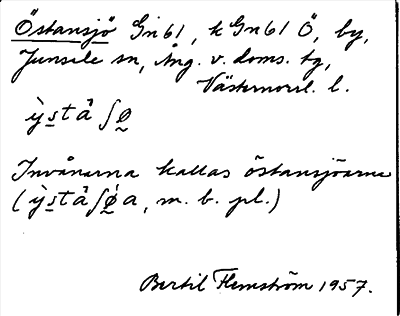 Östansjö Gn 61, k Gn 61 Ö, by,
Junsele sn, Ång. v. doms. tg,
Västernorrl. l.
ỳstå̀ʃø
Invånarna kallas östansjöarna
(ỳstå̀ʃø̀a, m. b. pl.)
Bertil Flemström 1957.